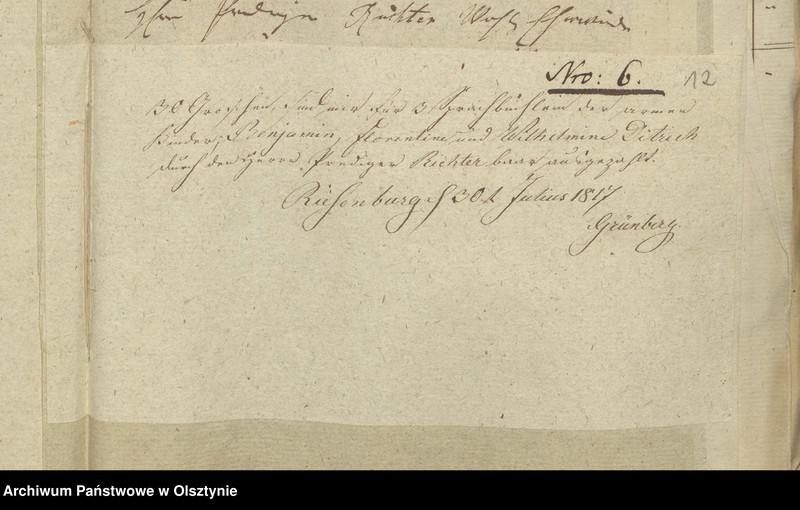 Herrn Prediger Richter Wohl Ehrwürden
Nro: 6. 12
30 Groschen, sind mir für 3 Sprachbüchlein der armen
Kinder, Benjamin, Florentine, und Wilhelmine Ditrich
durch den Herrn Prediger Richter baar ausgezahlt.
Riesenburg d 30t Julius 1817
Grünberg.
Archiwum Państwowe w Olsztynie